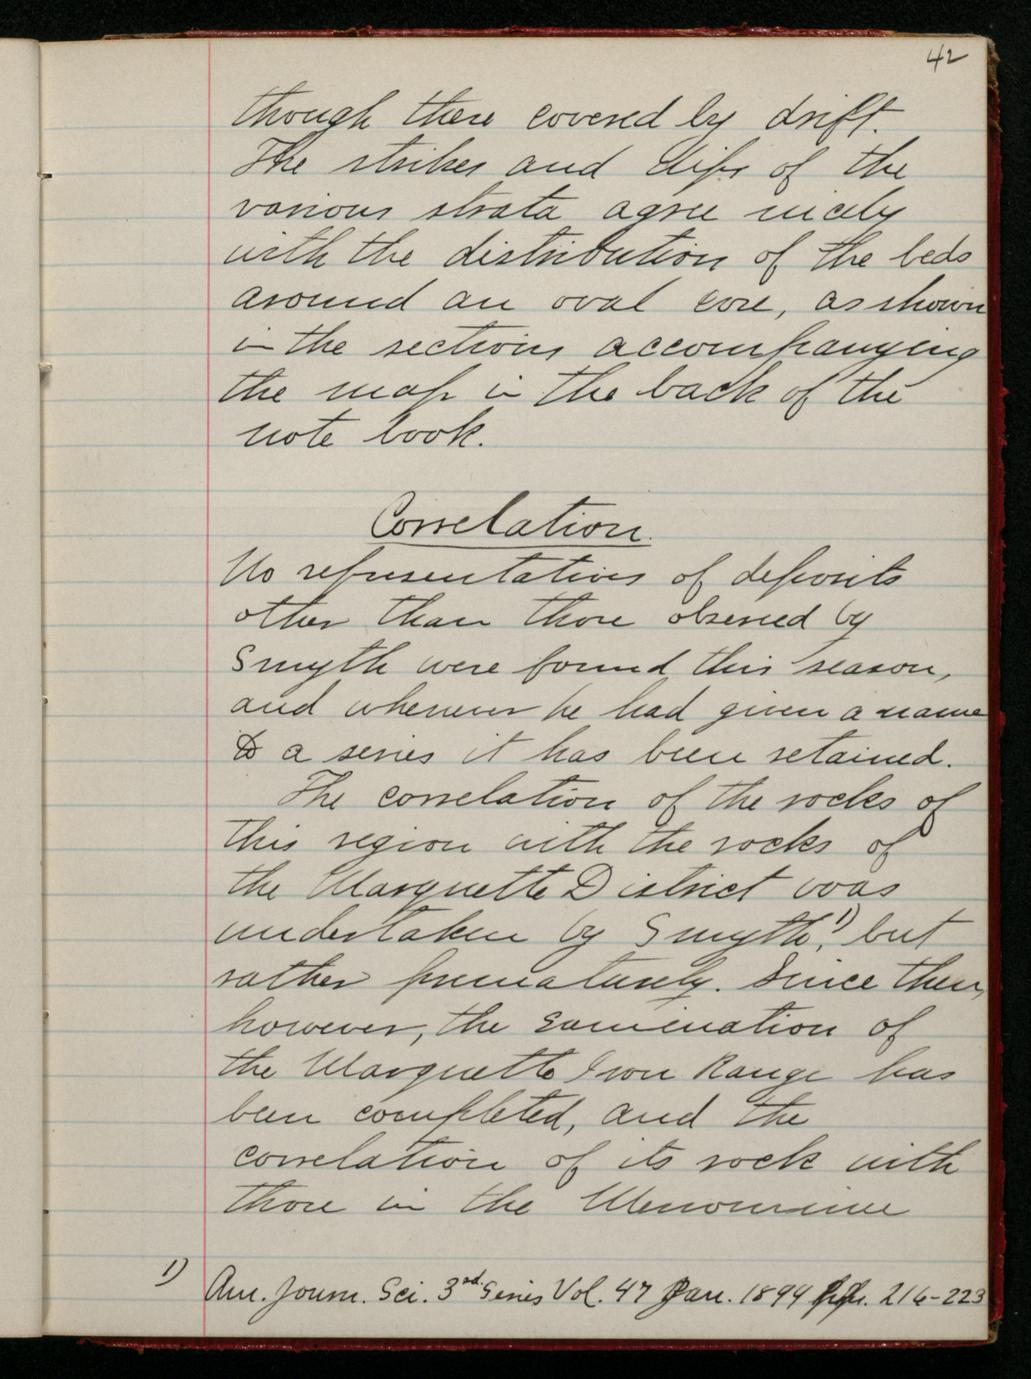 42
though there covered by drift.
The strikes and dips of the
various strata agree nicely
with the distribution of the beds
around an oval core, as shown
in the sections accompanying
the map in the back of the
note book.
Correlation.
No representatives of deposits
other than those observed by
Smyth were found this season,
and whenever he had given a name
to a series it has been retained.
The correlation of the rocks of
this region with the rocks of
the Marquette District was
undertaken by Smyth,1) but
rather prematurely. Since then,
however, the examination of
the Marquette Iron Range has
been completed, and the
correlation of its rock with
those in the Menominee
1) Am. Journ. Sci. 3rd. Series Vol. 47 Jan. 1894 pp. 216-223